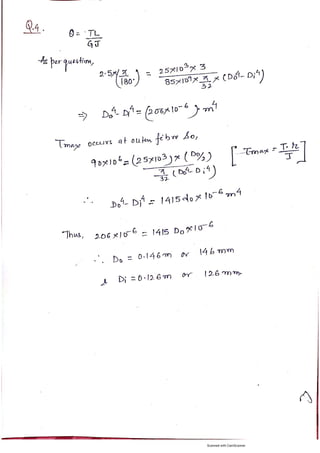 Q.4.
θ = TL/GJ
As per question,
2.5×(π/180°) = 25×10³×3 / 85×10⁹×π/32×(Do⁴-Di⁴)
⇒ Do⁴-Di⁴ = (206×10⁻⁶) m⁴
Tmax occurs at outer fiber so,
90×10⁶ = (25×10³)×(Do/2) / π/32 (Do⁴-Di⁴) [Tmax = T.r/J]
∴ Do⁴-Di⁴ = 1415 do×10⁻⁶ m⁴
Thus, 206×10⁻⁶ = 1415 Do×10⁻⁶
∴ Do = 0.146m or 146mm
& Di = 0.126m or 126mm
Scanned with CamScanner